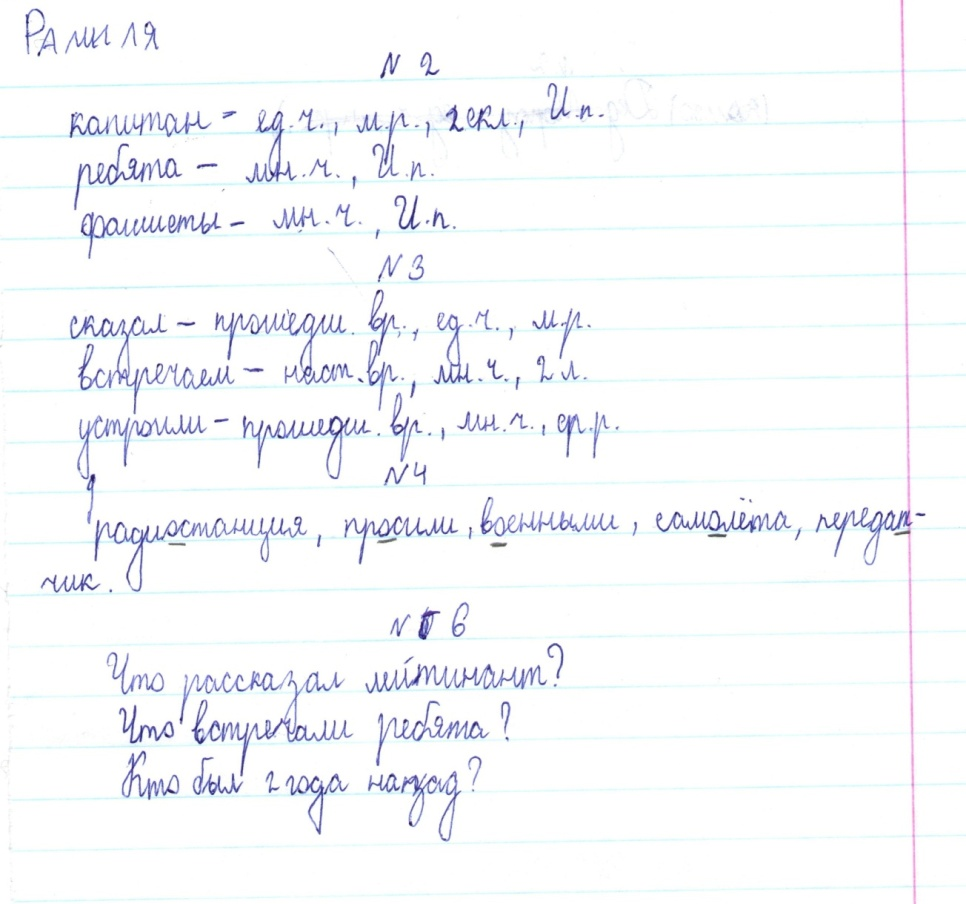 Рамиля
N 2
капитан - ед.ч., м.р., 2скл., И.п.
ребята - мн.ч., И.п.
фашисты - мн.ч., И.п.
N 3
сказал - прошедш. вр., ед.ч., м.р.
встречаем - наст.вр., мн.ч., 2 л.
устроили - прошедш. вр., мн.ч., ср.р.
N 4
радиостанция, просили, военными, самолёта, передат-
чик.
N 6
Что рассказал лейтинант?
Что встречали ребята?
Кто был 2 года назад?